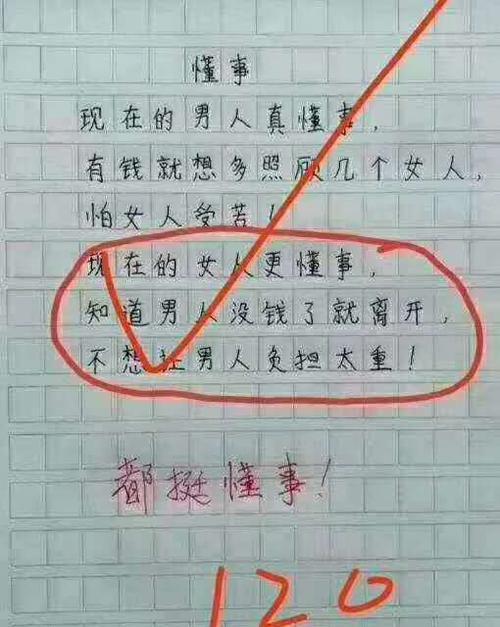 懂事
现在的男人真懂事，
有钱就想多照顾几个女人，
怕女人受苦！
现在的女人更懂事，
知道男人没钱了就离开，
不想让男人负担太重！
都挺懂事！
120